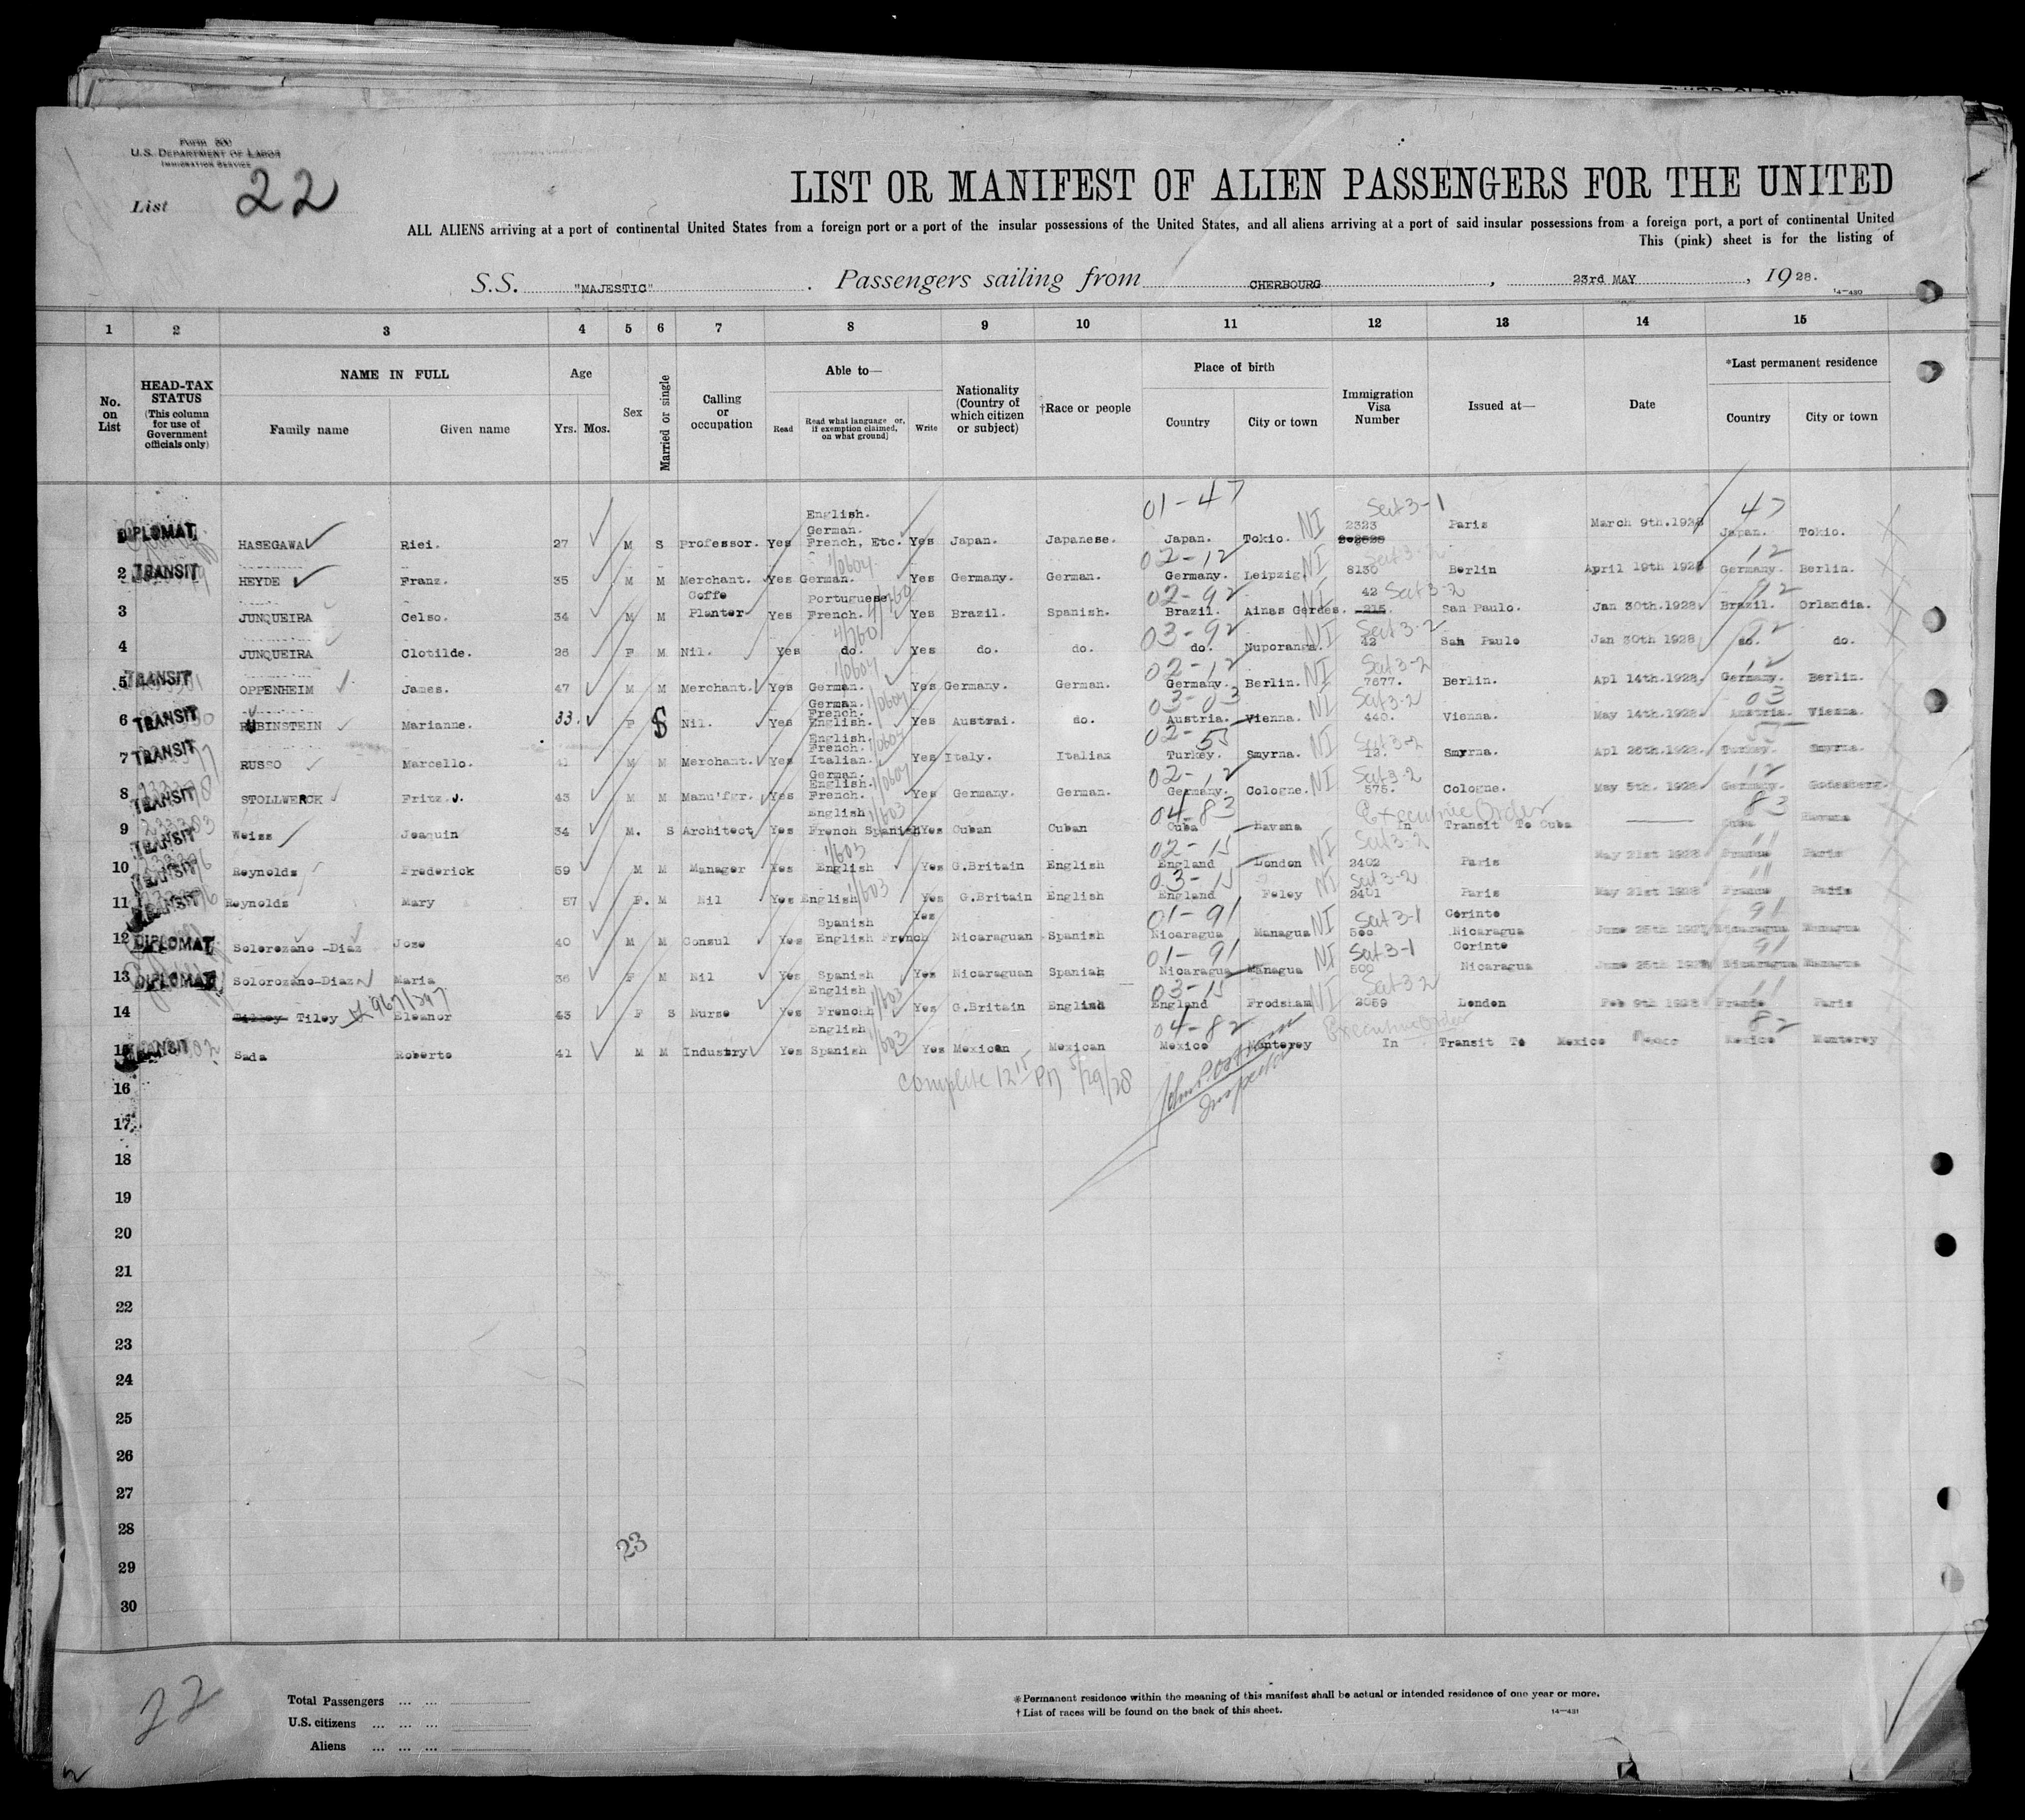 Form 500
U.S. DEPARTMENT OF LABOR
IMMIGRATION SERVICE
List 22
LIST OR MANIFEST OF ALIEN PASSENGERS FOR THE UNITED
ALL ALIENS arriving at a port of continental United States from a foreign port or a port of the insular possessions of the United States, and all aliens arriving at a port of said insular possessions from a foreign port, a port of continental United
This (pink) sheet is for the listing of
S.S. "MAJESTIC". Passengers sailing from CHERBOURG, 23rd MAY, 1928.
14-430
1 2 3 4 5 6 7 8 9 10 11 12 13 14 15
No. on List
HEAD-TAX STATUS (This column for use of Government officials only)
NAME IN FULL
Family name Given name
Age
Yrs. Mos.
Sex
Married or single
Calling or occupation
Able to—
Read Read what language or, if exemption claimed, on what ground] Write
Nationality (Country of which citizen or subject)
†Race or people
Place of birth
Country City or town
Immigration Visa Number
Issued at—
Date
*Last permanent residence
Country City or town
01-47 Sect 3-1 47
DIPLOMAT HASEGAWA Riei. 27 M S Professor. Yes English. German. French, Etc. Yes Japan. Japanese. Japan. Tokio. NI 2323 Paris March 9th.1928 Japan. Tokio.
02-12 Sect 3-2 12
2 TRANSIT HEYDE Franz. 35 M M Merchant. Yes German. Yes Germany. German. Germany. Leipzig. NI 8130 Berlin April 19th 1928 Germany. Berlin.
02-92 Sect 3-2 92
3 JUNQUEIRA Celso. 34 M M Coffe Planter Yes Portuguese. French. Yes Brazil. Spanish. Brazil. Ainas Gerdes. NI 42 215. San Paulo. Jan 30th.1928 Brazil. Orlandia.
03-92 Sect 3-2 92
4 JUNQUEIRA Clotilde. 26 F M Nil. Yes do. Yes do. do. do. Nuporanga. NI 42 San Paulo Jan 30th 1928 do. do.
02-12 Sect 3-2 12
5 TRANSIT OPPENHEIM James. 47 M M Merchant. Yes German. Yes Germany. German. Germany. Berlin. NI 7677. Berlin. Apl 14th.1928 Germany. Berlin.
03-03 Sect 3-2 03
6 TRANSIT RUBINSTEIN Marianne. 33. F S Nil. Yes German. French. English. Yes Austrai. do. Austria. Vienna. NI 440. Vienna. May 14th.1928 Austria. Vienna.
02-55 Sect 3-2 55
7 TRANSIT RUSSO Marcello. 41 M M Merchant. Yes English. French. Italian. Yes Italy. Italian Turkey. Smyrna. NI 12. Smyrna. Apl 26th.1928. Turkey. Smyrna.
02-12 Sect 3-2 12
8 TRANSIT STOLLWERCK Fritz J. 43 M M Manu'fgr. Yes German. English. French. Yes Germany. German. Germany. Cologne. NI 575. Cologne. May 5th. 1928 Germany. Godesberg.
04-83 Executive Order 83
9 TRANSIT Weiss Joaquin 34 M. S Architect Yes English French Spanish Yes Cuban Cuban Cuba Havana In Transit To Cuba Cuba Havana
02-15 Sect 3-2 11
10 TRANSIT Reynolds Frederick 59 M M Manager Yes English Yes G.Britain English England London NI 2402 Paris May 21st 1928 France Paris
03-15 Sect 3-2 11
11 TRANSIT Reynolds Mary 57 F. M Nil Yes English Yes G.Britain English England Foley NI 2401 Paris May 21st 1928 France Paris
01-91 Sect 3-1 91
12 DIPLOMAT Solorozano-Diaz Jose 40 M M Consul Yes Spanish English French Yes Nicaraguan Spanish Nicaragua Managua NI 500 Corinto Nicaragua June 25th 1927 Nicaragua Managua
01-91 Sect 3-1 91
13 DIPLOMAT Solorozano-Diaz Maria 36 F M Nil Yes Spanish Yes Nicaraguan Spanish Nicaragua Managua NI 500 Corinto Nicaragua June 25th 1927 Nicaragua Managua
03-15 Sect 3-2 11
14 Tiley Eleanor 43 F S Nurse Yes English French Yes G.Britain English England Frodsham NI 2059 London Feb 9th 1928 France Paris
04-82 Executive Order 82
15 TRANSIT Sada Roberto 41 M M Industry Yes English Spanish Yes Mexican Mexican Mexico Monterey In Transit To Mexico Mexico Mexico Monterey
complete 12 15 PM 5/29/28
Inspector
16
17
18
19
20
21
22
23
24
25
26
27
28
23
29
30
22
Total Passengers ... ...
U.S. citizens ... ... ...
Aliens ... ... ...
*Permanent residence within the meaning of this manifest shall be actual or intended residence of one year or more.
†List of races will be found on the back of this sheet.
14-431